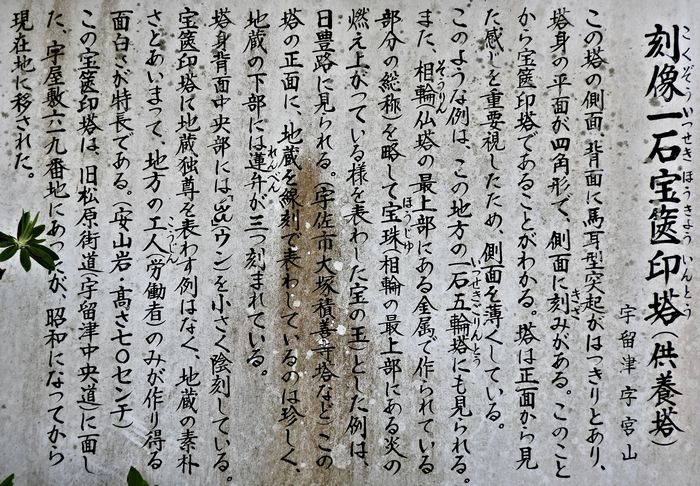 刻像一石宝篋印塔(供養塔)
こくぞういっせきほうきょういんとう
宇留津 字宮山
この塔の側面、背面に馬耳型突起がはっきりとあり、
塔身の平面が四角形で、側面に刻みがある。このこと
きざ
から宝篋印塔であることがわかる。塔は正面から見
た感じを重要視したため、側面を薄くしている。
このような例は、この地方の一石五輪塔にも見られる。
いっせきごりんとう
また、相輪仏塔の最上部にある金属で作られている
そうりん
部分の総称)を略して宝珠相輪の最上部にある炎の
ほうじゅ
燃え上がっている様を表わした宝の玉)とした例は、
日豊路に見られる。(宇佐市大塚積善寺塔など)この
塔の正面に、地蔵を線刻で表わしているのは珍しく、
地蔵の下部には蓮弁が三つ刻まれている。
れんべん
塔身背面中央部には「(ウン)を小さく陰刻している。
宝篋印塔に地蔵独尊を表わす例はなく、地蔵の素朴
さとあいまって、地方の工人(労働者)のみが作り得る
こうじん
面白さが特長である。(安山岩・高さ七〇センチ)
この宝篋印塔は、旧松原街道(宇留津中央道)に面し
た、字屋敷六二九番地にあったが、昭和になってから
現在地に移された。